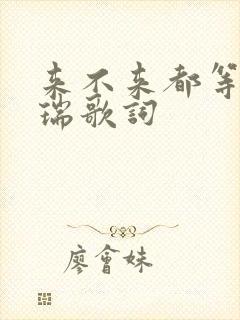 来不来都等
瑞歌詞
廖會妹